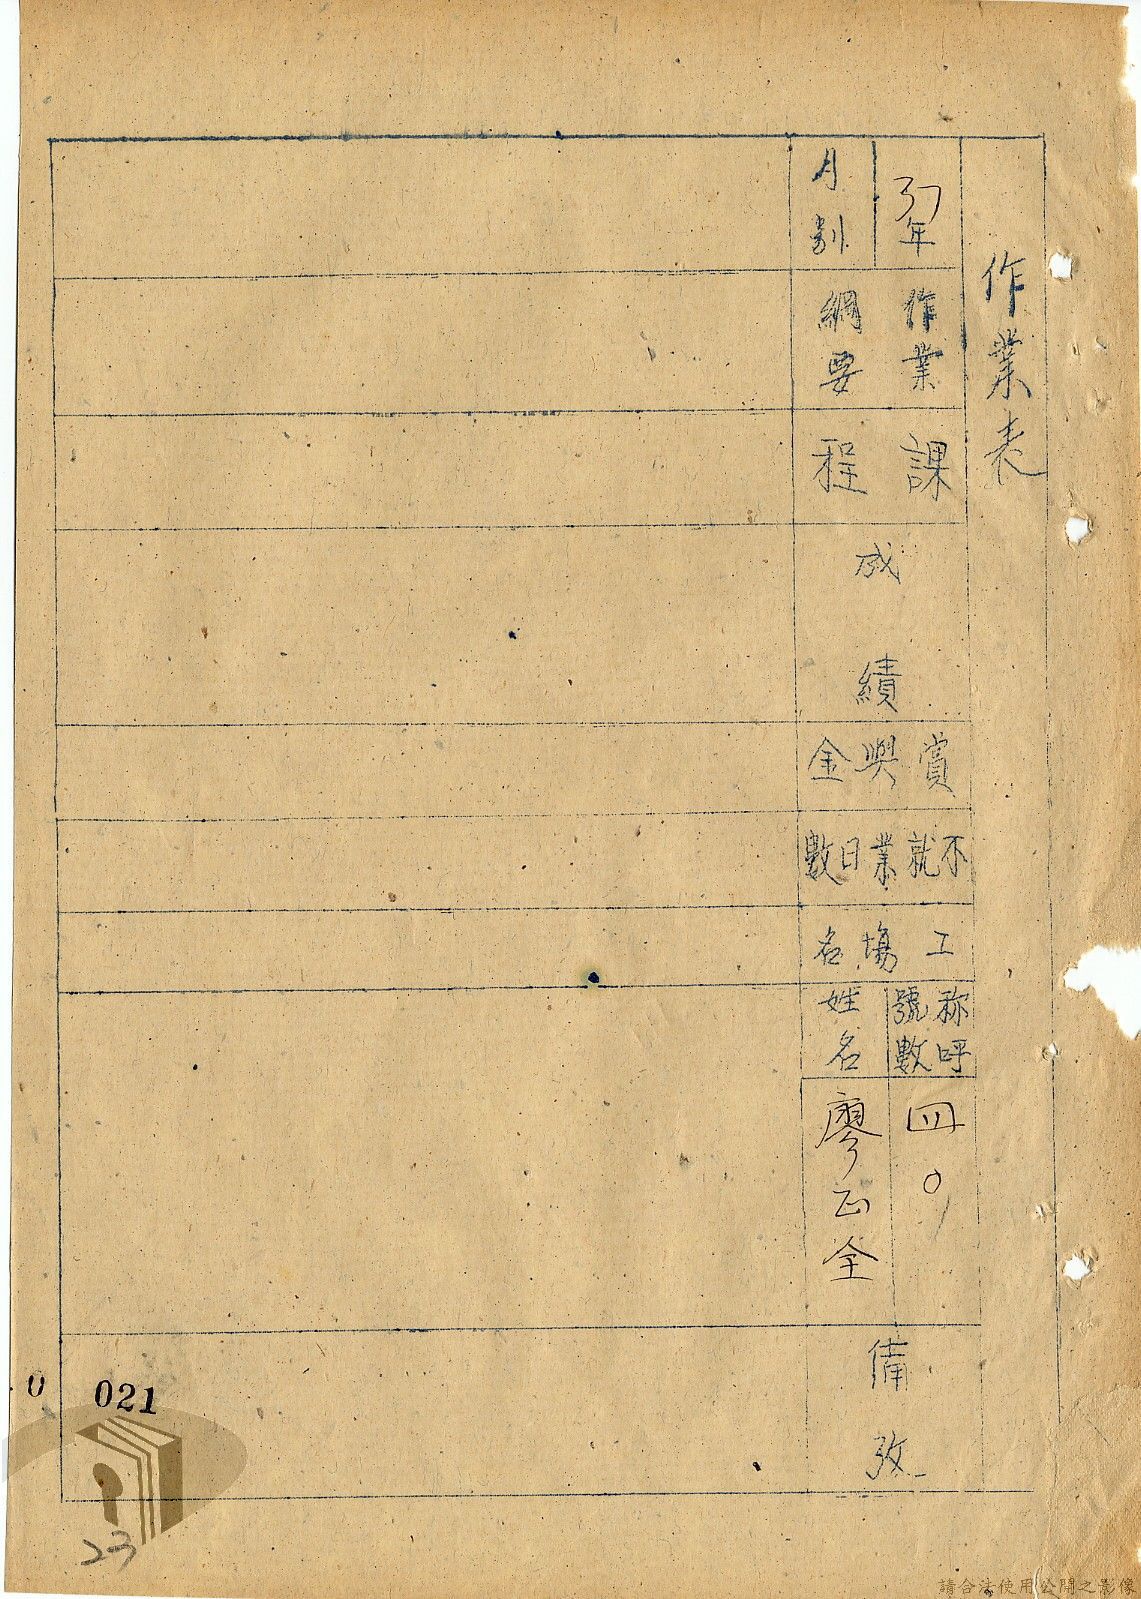 作業表
37年
月別
作業
綱要
課程
成績
賞與金
不就業日數
工場名
称呼
號數
四〇
姓名
廖正全
備攷
0
021
23
請合法使用公開之影像